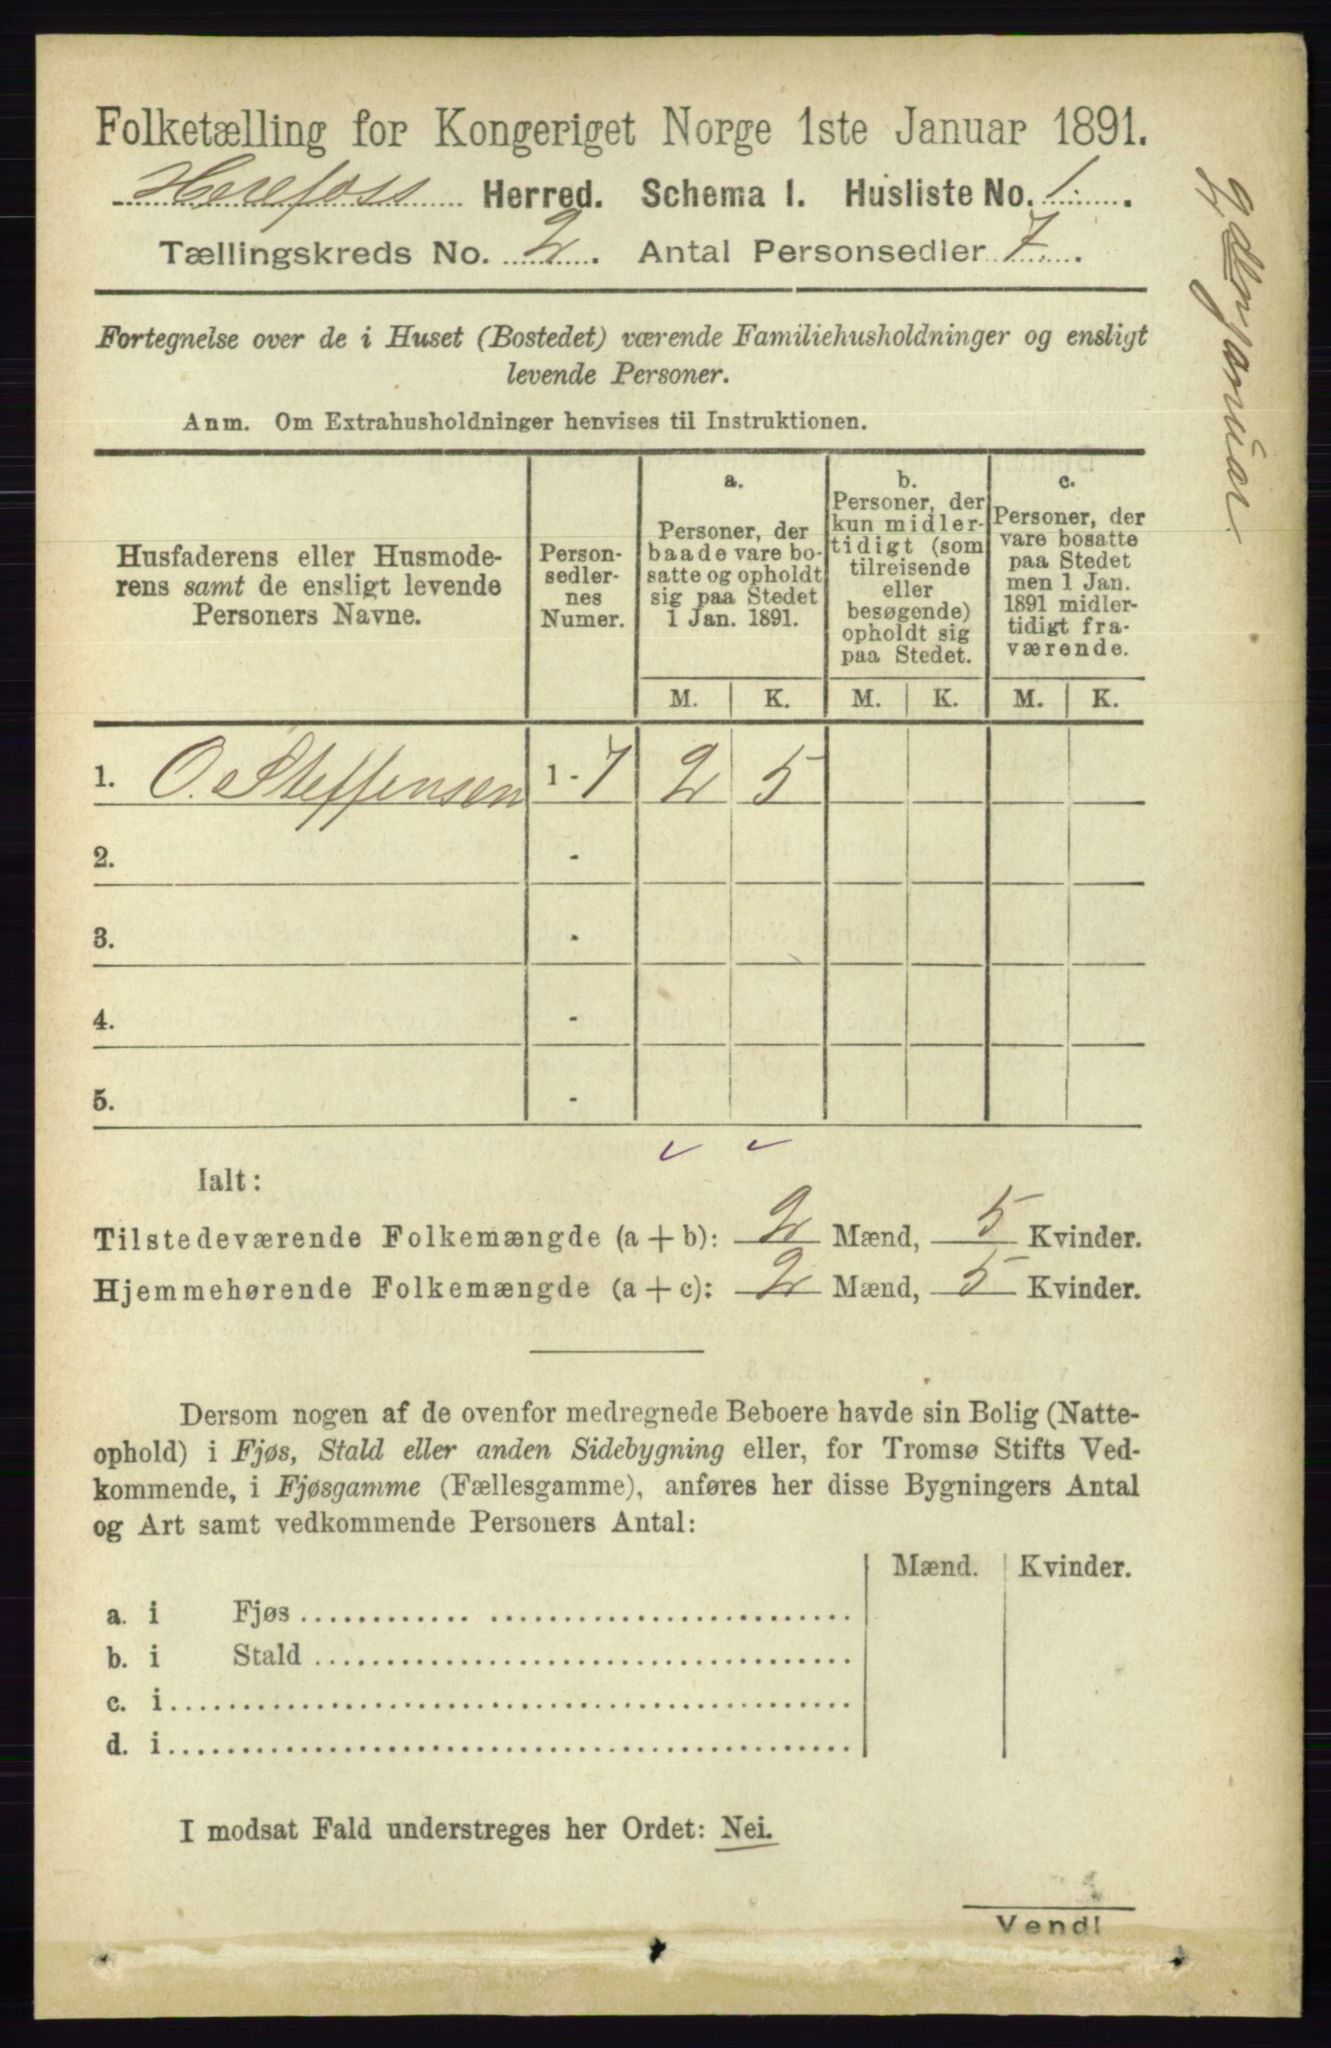 Folketælling for Kongeriget Norge 1ste Januar 1891.
Herefoss Herred. Schema I. Husliste No. 1.
Tællingskreds No. 2. Antal Personsedler 7.
Fortegnelse over de i Huset (Bostedet) værende Familiehusholdninger og ensligt
levende Personer.
Anm. Om Extrahusholdninger henvises til Instruktionen.
Husfaderens eller Husmode-
rens samt de ensligt levende
Personers Navne.
Person-
sedler-
nes
Numer.
a.
Personer, der
baade vare bo-
satte og opholdt
sig paa Stedet
1 Jan. 1891.
b.
Personer, der
kun midler-
tidigt (som
tilreisende
eller
besøgende)
opholdt sig
paa Stedet.
c.
Personer, der
vare bosatte
paa Stedet
men 1 Jan.
1891 midler-
tidigt fra-
værende.
M. K. M. K. M. K.
1. O. Steffensen 1 - 7 2 5
2. -
3. -
4. -
5. -
Ialt:
Tilstedeværende Folkemængde (a + b): 2 Mænd, 5 Kvinder.
Hjemmehørende Folkemængde (a + c): 2 Mænd, 5 Kvinder.
Dersom nogen af de ovenfor medregnede Beboere havde sin Bolig (Natte-
ophold) i Fjøs, Stald eller anden Sidebygning eller, for Tromsø Stifts Ved-
kommende, i Fjøsgamme (Fællesgamme), anføres her disse Bygningers Antal
og Art samt vedkommende Personers Antal:
Mænd. Kvinder.
a. i Fjøs
b. i Stald
c. i
d. i
I modsat Fald understreges her Ordet: Nei.
Vend!
Januar